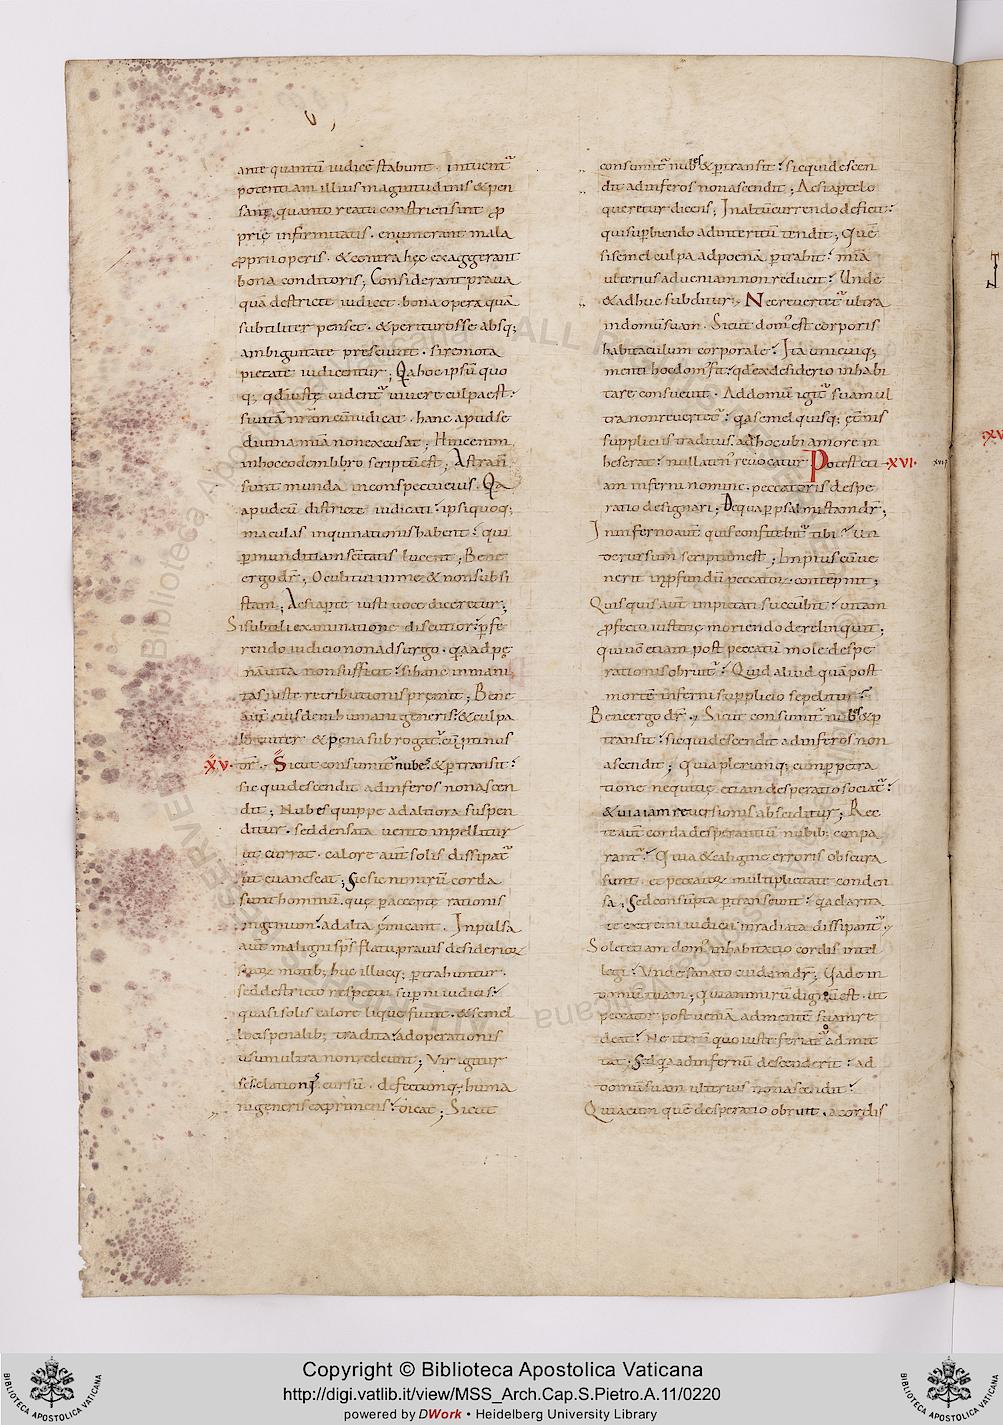 ante quantū iudicē stabunt. intuent᷑
potentiam illius magnitudinis & pen
sant, quanto reatu constricti sint ꝓ
prię infirmitatis. enumerant mala
ꝓprii operis. & contra hęc exaggerant
bona conditoris; Considerant praua
quā districte iudicet. bona opera quā
subtiliter penset. & perituros se absq;
ambiguitate presciunt. si remota
pietate iudicentur; Qa hoc ipsū quo
q; qđ iuste uident᷑ uiuere culpa est.
si uitā nr̄am cū iudicat. hanc apud se
diuina mīa non excusat; Hinc enim
in hoc eodem libro scriptū est; Astra n̄
sunt munda in conspectu eius. Qa
apud eū districte iudicati. ipsi quoq;
maculas inquinationis habent. qui
ꝑ munditiam sc̄itatis lucent; Bene
ergo dr̄; Oculi tui in me & non subsi
stam; Ac si aꝑte iusti uoce diceretur;
Si subtili examinatione discutior. ꝑ fe
rendo iudicio non adsurgo. qa ad pę
nā uita non sufficit. si hanc inmani
tas iuste retributionis premit; Bene
aut̄ eiusdem humani generis. & culpa
breuiter & pena subrogat᷑ cū ꝑtinus
·XV· or̄. Sicut consumit᷑ nubes & ꝑtransit.
sic qui descendit ad inferos non ascen
dit; Nubes quippe ad altiora suspen
ditur. sed densata uento inpellitur
ut currat. calore aut̄ solis dissipat᷑
ut euanescat; Sic sic nimirū corda
sunt hominū. quę ꝑ acceptę rationis
ingenium. ad alta emicant. Inpulsa
aut̄ maligni sp̄s flatu, prauis desideriorꝝ
suorꝝ motib; huc illucq; ꝑtrahuntur.
sed districto respectu suꝑni iudicis.
quasi solis calore liquefiunt. & semel
locis penalib; tradita. ad operationis
usum ultra non redeunt; Vir igitur
sc̄s elationē, cursū. defectumq; huma
ni generis exprimens. dicat; Sicut
consumit᷑ nubes & ꝑtransit. sic qui descen
dit ad inferos non ascendit; Ac si aꝑte lo
queretur dicens; In altū currendo deficit.
qui suꝑbiendo ad interitū tendit; Quē
si semel culpa ad poenā ꝑtrahit. mīa
ulterius ad ueniam non reducit. Unde
& adhuc subditur; Nec reuertet᷑ ultra
in domū suam. Sicut dom᷒ est corporis
habitaculum corporale. Ita unicuiq;
menti hoc dom᷒ fit. qđ ex desiderio inhabi
tare consueuit. Ad domū igit᷑ suam ul
tra non reuertet᷑. qa semel quisq; ęt̄nis
suppliciis traditus. ad hoc ubi amore in
heserat. nullaten᷒ reuocatur Potest eti ·XVI·
am inferni nomine. peccatoris despe
ratio designari; De qua ꝑ psalmistam dr̄;
In inferno aut̄ quis confitebit᷑ tibi. Un
de rursum scriptum est; Impius cū ue
nerit in ꝓfundū peccatorꝝ. contēpnit;
Quisquis aut̄ impietati succūbit. uitam
ꝓfecto iustitię moriendo derelinquit;
qui uō etiam post peccatū mole despe
rationis obruit᷑. Quid aliud quā post
mortē inferni supplicio sepelitur.
Bene ergo dr̄. Sicut consumit᷑ nubes & ꝑ
transit. sic qui descendit ad inferos non
ascendit; Quia plerumq; cum ꝑpetra
tione nequitię etiam desperatio sociat᷑.
& uia iam reuersionis absciditur; Rec
te aut̄ corda desperantiū nubib; conpa
rant᷑. Quia & caligine erroris obscura
sunt. et peccatorꝝ multiplicitate conden
sa; Sed consūpta ꝑtranseunt. qa clarita
te extremi iudicii inradiata dissipant᷑.
Solet etiam dom᷒ inhabitatio cordis intel
legi. Unde sanato cuidam dr̄; Uade in
domū tuam; Quia nimirū dignū est. ut
peccator post ueniā ad mentē suam re
deat. Ne iterū quo iuste feriat᷑ admit
tat; Sed qa ad infernū descenderit. ad
domū suam ulterius non ascendit.
Quia cum quē desperatio obruit. a cordis
Copyright © Biblioteca Apostolica Vaticana
http://digi.vatlib.it/view/MSS_Arch.Cap.S.Pietro.A.11/0220
powered by DWork • Heidelberg University Library